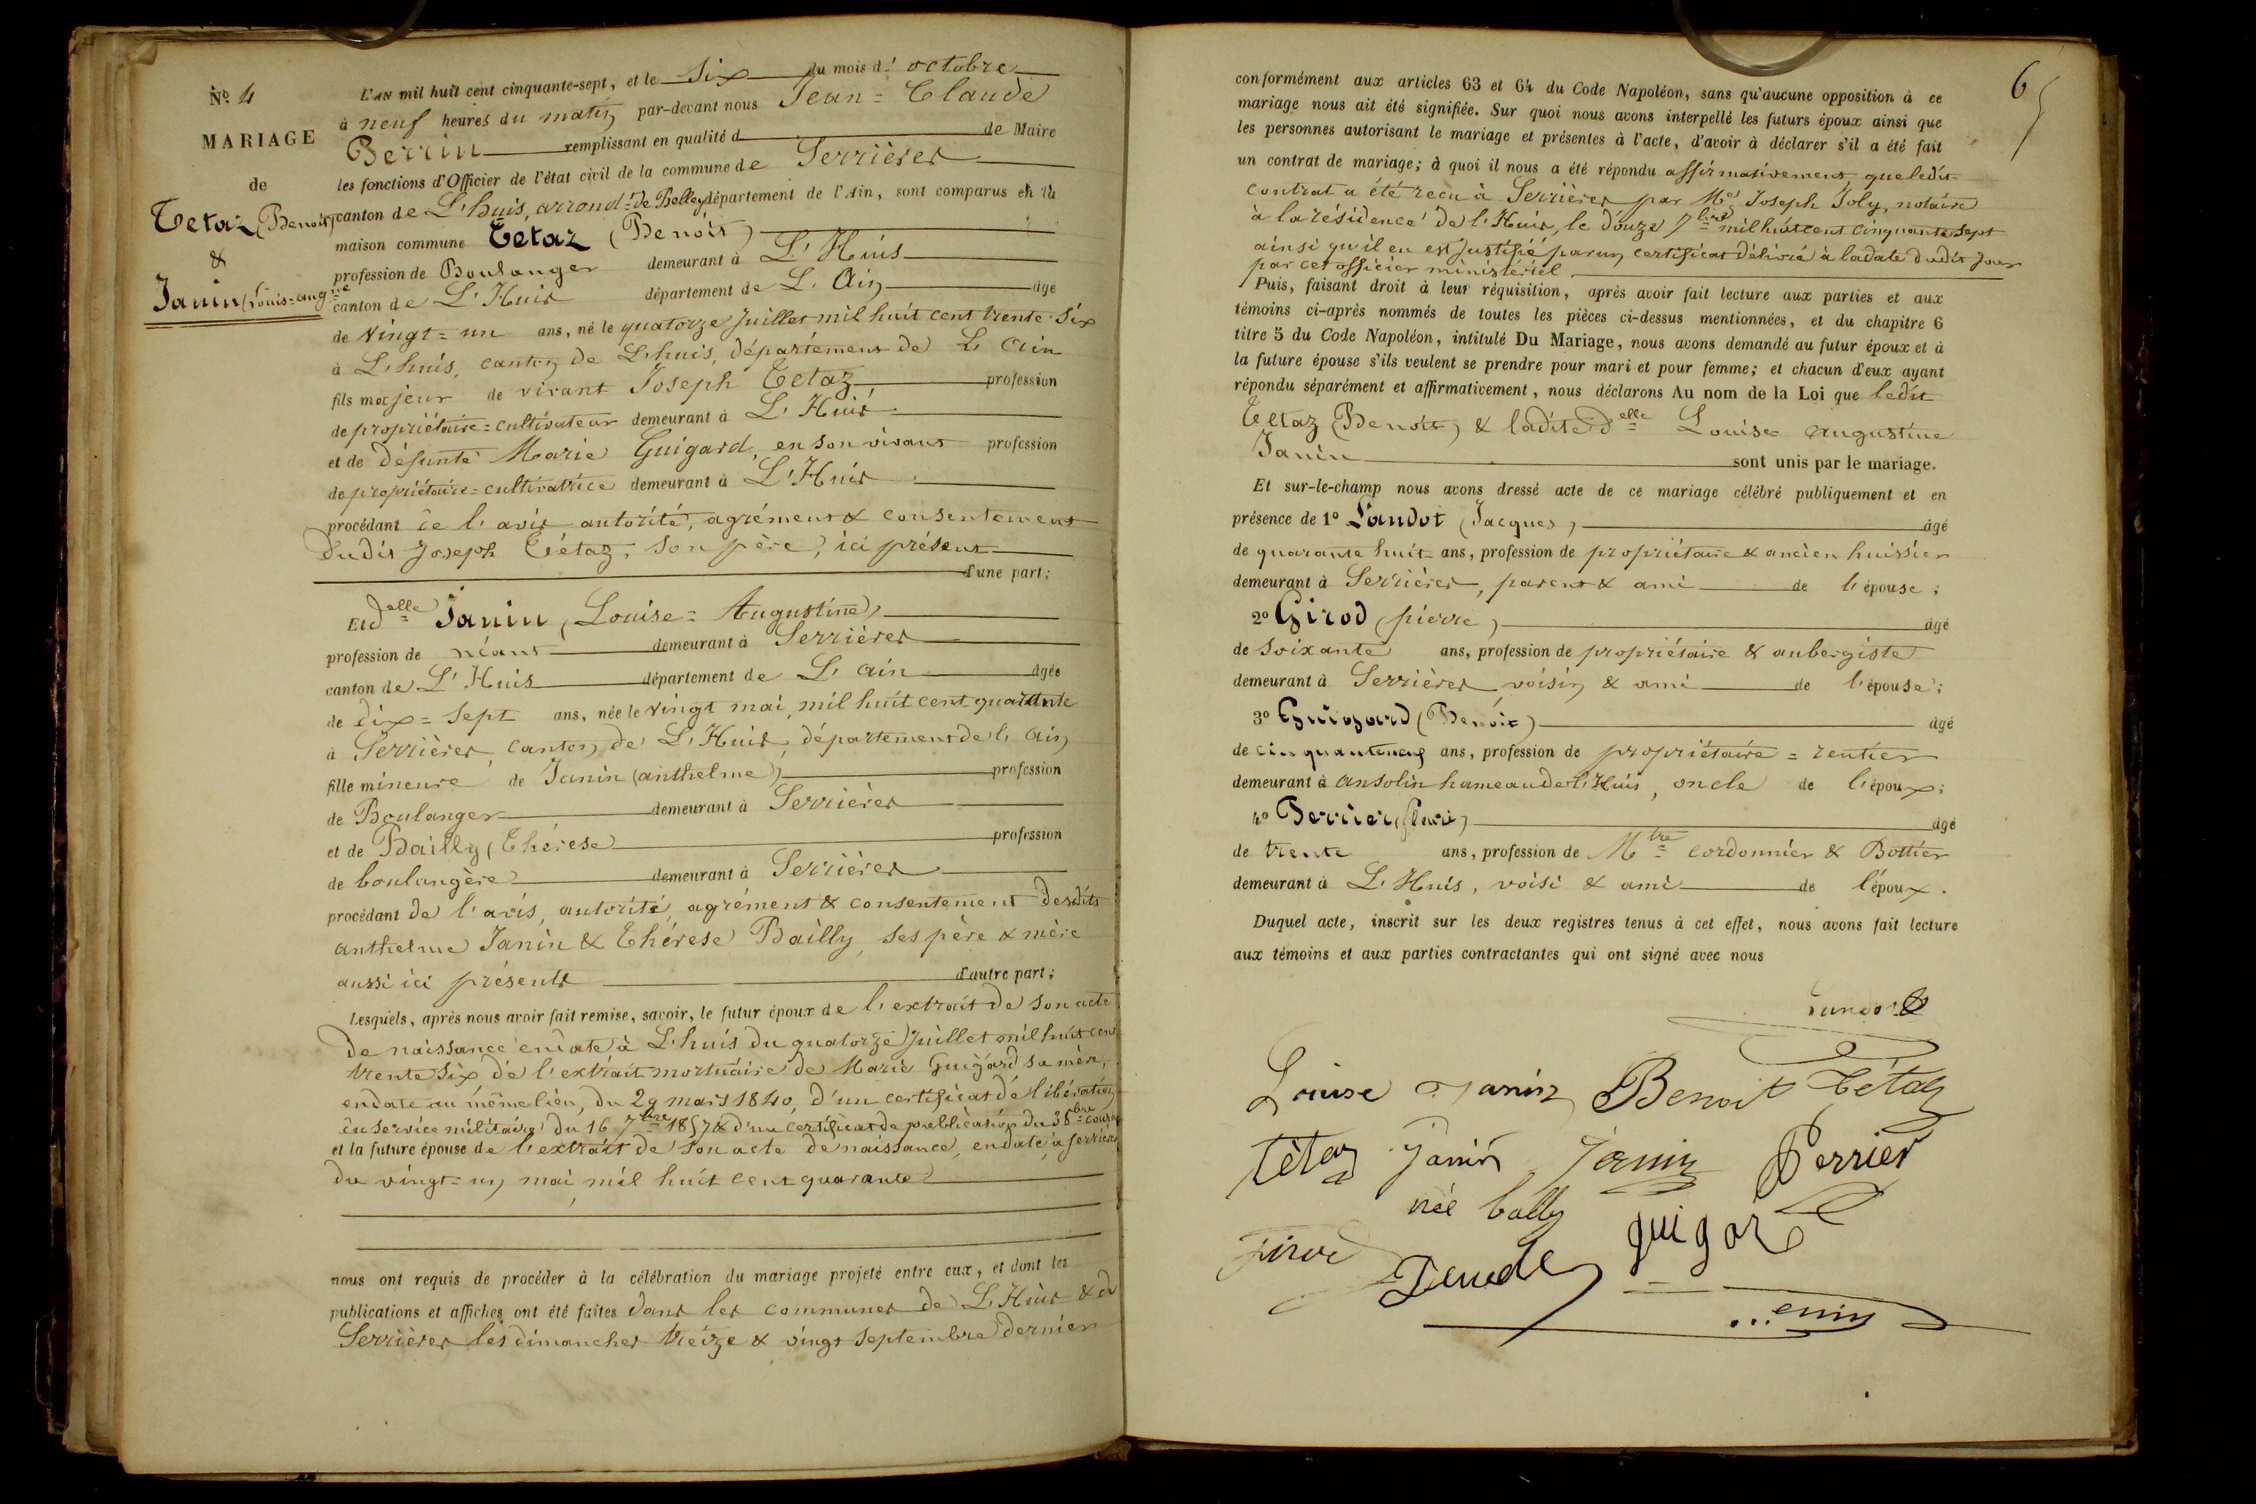 No. 4
MARIAGE
de
Tetaz (Benoit)
&
Janin (Louise=Augne
L'AN mil huit cent cinquante-sept, et le six du mois d' octobre
à neuf heures du matin par-devant nous Jean=Claude
Perrin remplissant en qualité d de Maire
les fonctions d'Officier de l'état civil de la commune de Serrières
canton de L'huis, arrond.t de Belley département de l'Ain, sont comparus en la
maison commune Tetaz (Benoit)
profession de Boulanger demeurant à L'Huis
canton de L'Huis département de L'Ain âgé
de vingt=un ans, né le quatorze juillet mil huit cent trente six
à L'huis, canton de L'huis, département de L'Ain
fils majeur de vivant Joseph Tetaz, profession
de propriétaire=cultivateur demeurant à L'Huis
et de défunte Marie Guigard, en son vivant profession
de propriétaire=cultivatrice demeurant à L'Huis
procédant de l'avis autorité, agrément & consentement
dudit Joseph Tétaz, son père, ici présent
d'une part;
Et Delle Janin (Louise=Augustine)
profession de néant demeurant à Serrières
canton de L'Huis département de L'ain âgée
de dix=sept ans, née le vingt mai, mil huit cent quarante
à Serrières, canton de L'Huis, département de l'ain
fille mineure de Janin (anthelme) profession
de Boulanger demeurant à Serrières
et de Bailly (Thérese) profession
de boulangère demeurant à Serrières
procédant de l'avis, autorité, agrément & consentement desdits
anthelme Janin & Thérese Bailly, ses père & mère
aussi ici présents d'autre part;
Lesquels, après nous avoir fait remise, savoir, le futur époux de l'extrait de son acte
de naissance en date à L'huis du quatorze juillet mil huit cent
trente six de l'extrait mortuaire de Marie Guigard sa mère,
en date au même lieu, du 29 mars 1840, d'un certificat de libération
du service militaire du 16 7bre 1857 & d'un certificat de publication du 3 8bre courant
et la future épouse de l'extrait de son acte de naissance, en date, à serrières
du vingt=un mai, mil huit cent quarante
nous ont requis de procéder à la célébration du mariage projeté entre eux, et dont les
publications et affiches ont été faites dans les communes de L'Huis & de
Serrières les dimanches treize & vingt septembre dernier
6
conformément aux articles 63 et 64 du Code Napoléon, sans qu'aucune opposition à ce
mariage nous ait été signifiée. Sur quoi nous avons interpellé les futurs époux ainsi que
les personnes autorisant le mariage et présentes à l'acte, d'avoir à déclarer s'il a été fait
un contrat de mariage; à quoi il nous a été répondu affirmativement que ledit
contrat a été reçu à Serrières par Me Joseph Joly, notaire
à la résidence de L'Huis, le douze 7bre mil huit cent cinquante sept
ainsi qu'il en est justifié par un certificat délivré à la date dudit jour
par cet officier ministériel
Puis, faisant droit à leur réquisition, après avoir fait lecture aux parties et aux
témoins ci-après nommés de toutes les pièces ci-dessus mentionnées, et du chapitre 6
titre 5 du Code Napoléon, intitulé Du Mariage, nous avons demandé au futur époux et à
la future épouse s'ils veulent se prendre pour mari et pour femme; et chacun d'eux ayant
répondu séparément et affirmativement, nous déclarons Au nom de la Loi que ledit
Tetaz (Benoit) & ladite Delle Louise augustine
Janin sont unis par le mariage.
Et sur-le-champ nous avons dressé acte de ce mariage célébré publiquement et en
présence de 1o Landot (Jacques) âgé
de quarante huit ans, profession de propriétaire & ancien huissier
demeurant à Serrières, parent & ami de l'épouse;
2o Girod (pierre) âgé
de soixante ans, profession de propriétaire & aubergiste
demeurant à Serrières voisin & ami de l'épouse;
3o Guigard (Benoit) âgé
de cinquanteneuf ans, profession de propriétaire=rentier
demeurant à ansolin hameau de L'Huis, oncle de l'époux;
4o Perrier âgé
de trente ans, profession de Mtre cordonnier & Bottier
demeurant à L'Huis, voisi & ami de l'époux.
Duquel acte, inscrit sur les deux registres tenus à cet effet, nous avons fait lecture
aux témoins et aux parties contractantes qui ont signé avec nous
Landot
Louise Janin Benoit Tétaz
tétaz Janin Janin Perrier
née bally
girod guigar